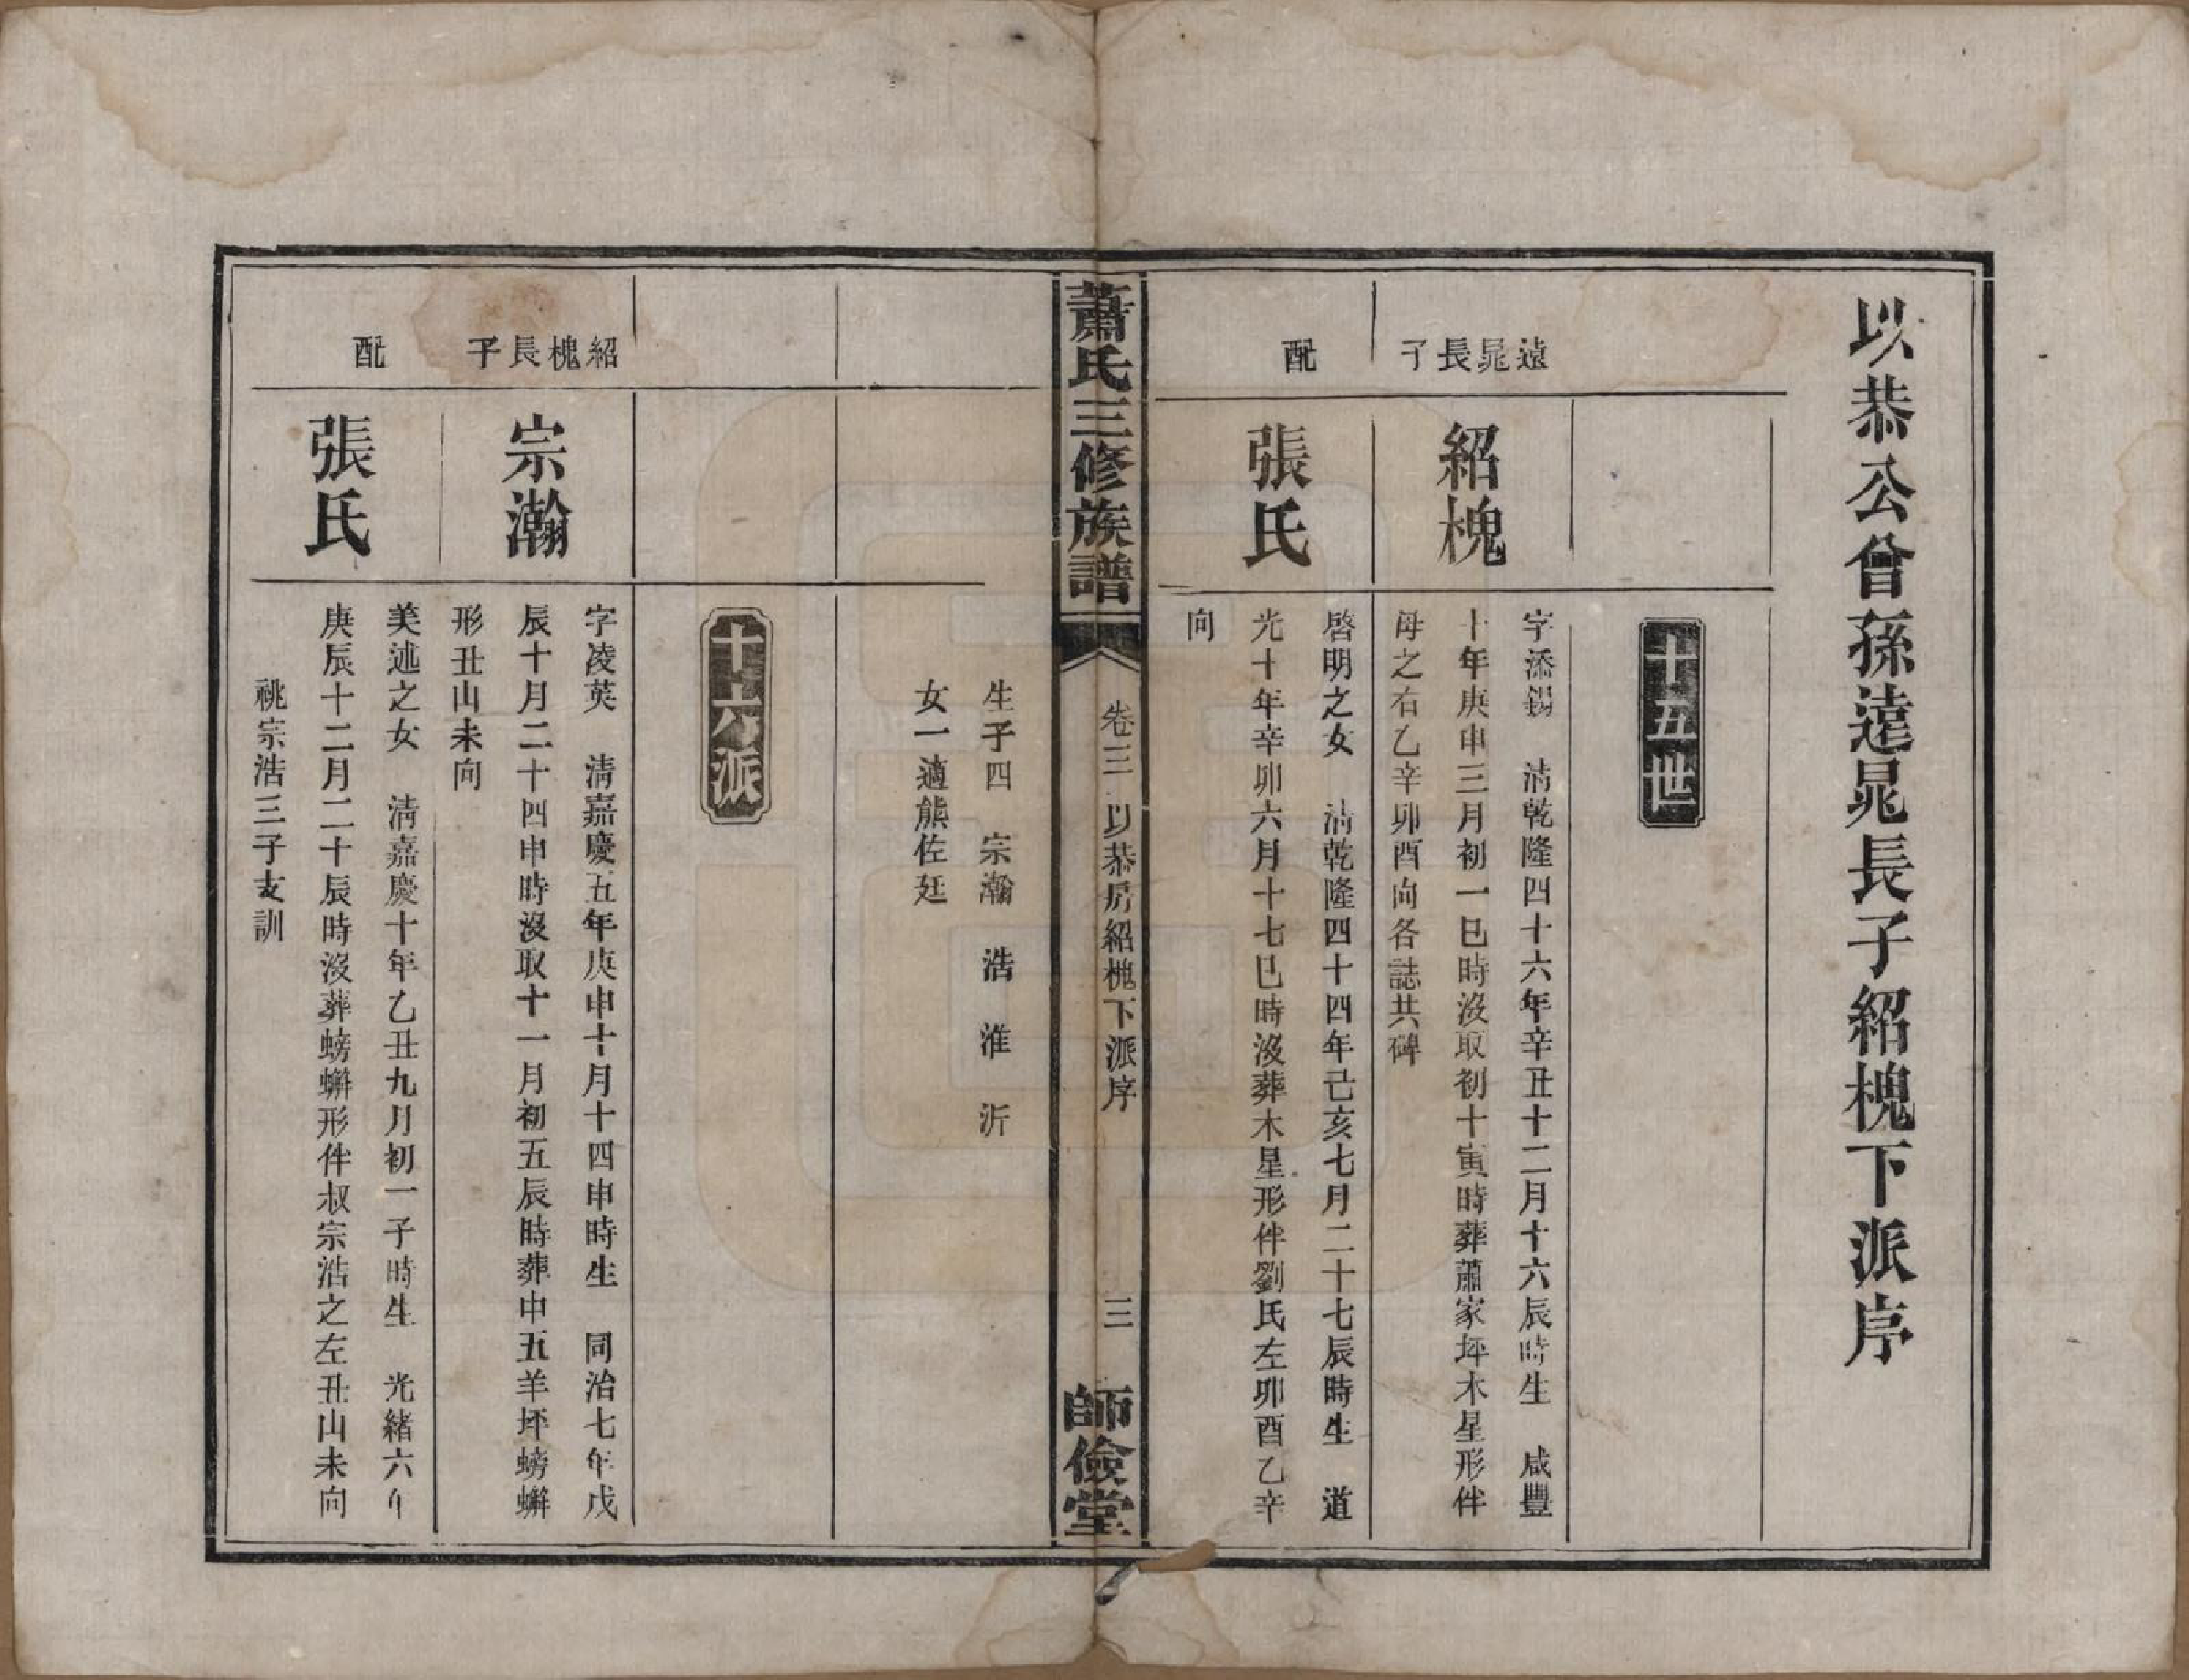 以恭公曾孫遠晁長子紹槐下派序
十五世
遠晁長子
紹槐
字添錫　清乾隆四十六年辛丑十二月十六辰時生　咸豐
十年庚申三月初一巳時沒取初十寅時葬蕭家坪木星形伴
母之右乙辛卯酉向各誌共碑
配
張氏
啓明之女　清乾隆四十四年己亥七月二十七辰時生　道
光十年辛卯六月十七巳時沒葬木星形伴劉氏左卯酉乙辛
向
蕭氏三修族譜
卷三　以恭房紹槐下派序
三
師儉堂
生子四　宗瀚　浩　淮　沂
女一適熊佐廷
十六派
紹槐長子
宗瀚
字凌英　清嘉慶五年庚申十月十四申時生　同治七年戊
辰十月二十四申時沒取十一月初五辰時葬申五羊坪螃蠏
形丑山未向
配
張氏
美述之女　清嘉慶十年乙丑九月初一子時生　光緒六年
庚辰十二月二十辰時沒葬螃蠏形伴叔宗浩之左丑山未向
祧宗浩三子支訓